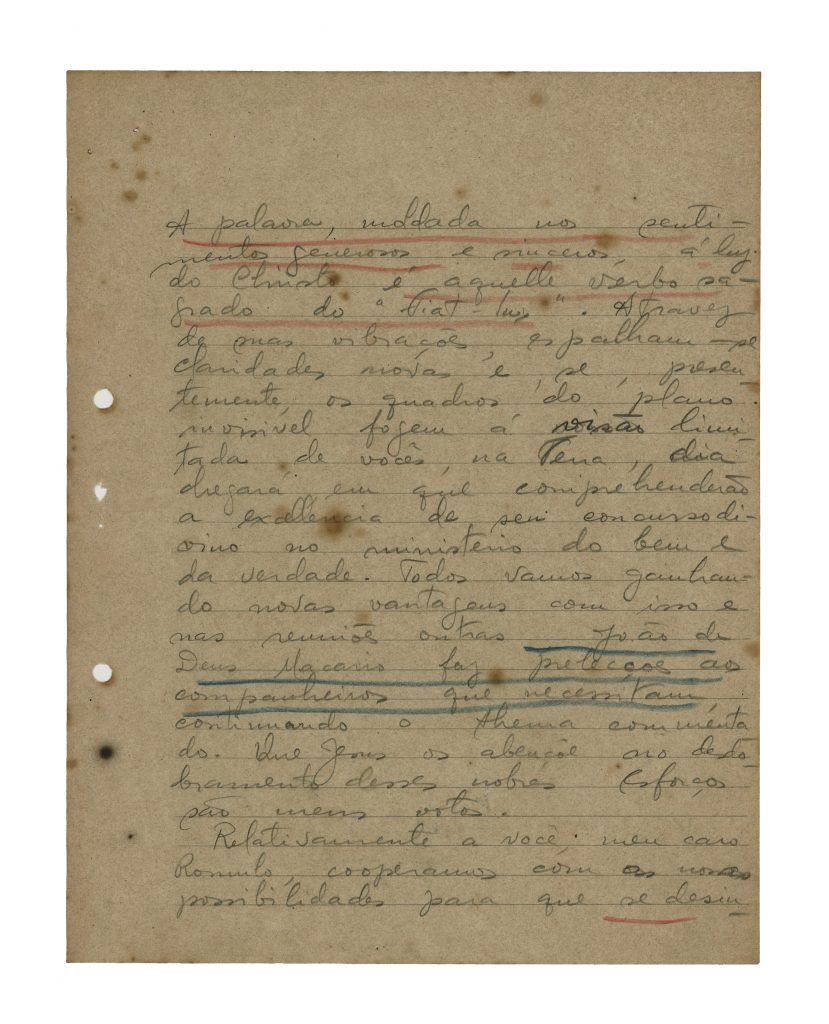 A palavra, moldada nos senti-
mentos generosos e sinceros, á luz
do Christo é aquelle verbo sa-
grado do "Fiat-lux". Atravez
de suas vibrações, espalham-se
claridades novas e se, presen-
temente, os quadros do plano
invisivel fogem á visão limi-
tada de vocês, na Terra, dia
chegará em que comprehenderão
a excellencia de seu concurso di-
vino no ministerio do bem e
da verdade. Todos vamos ganhan-
do novas vantagens com isso e
nas reuniões outras João de
Deus Macario faz prelecções aos
companheiros que necessitam,
continuando o thema commenta
do. Que Jesus os abençôe no desdo-
bramento desses nobres esforços
são meus votos.
Relativamente a você, meu caro
Romulo, cooperamos com as nossas
possibilidades para que se desin-